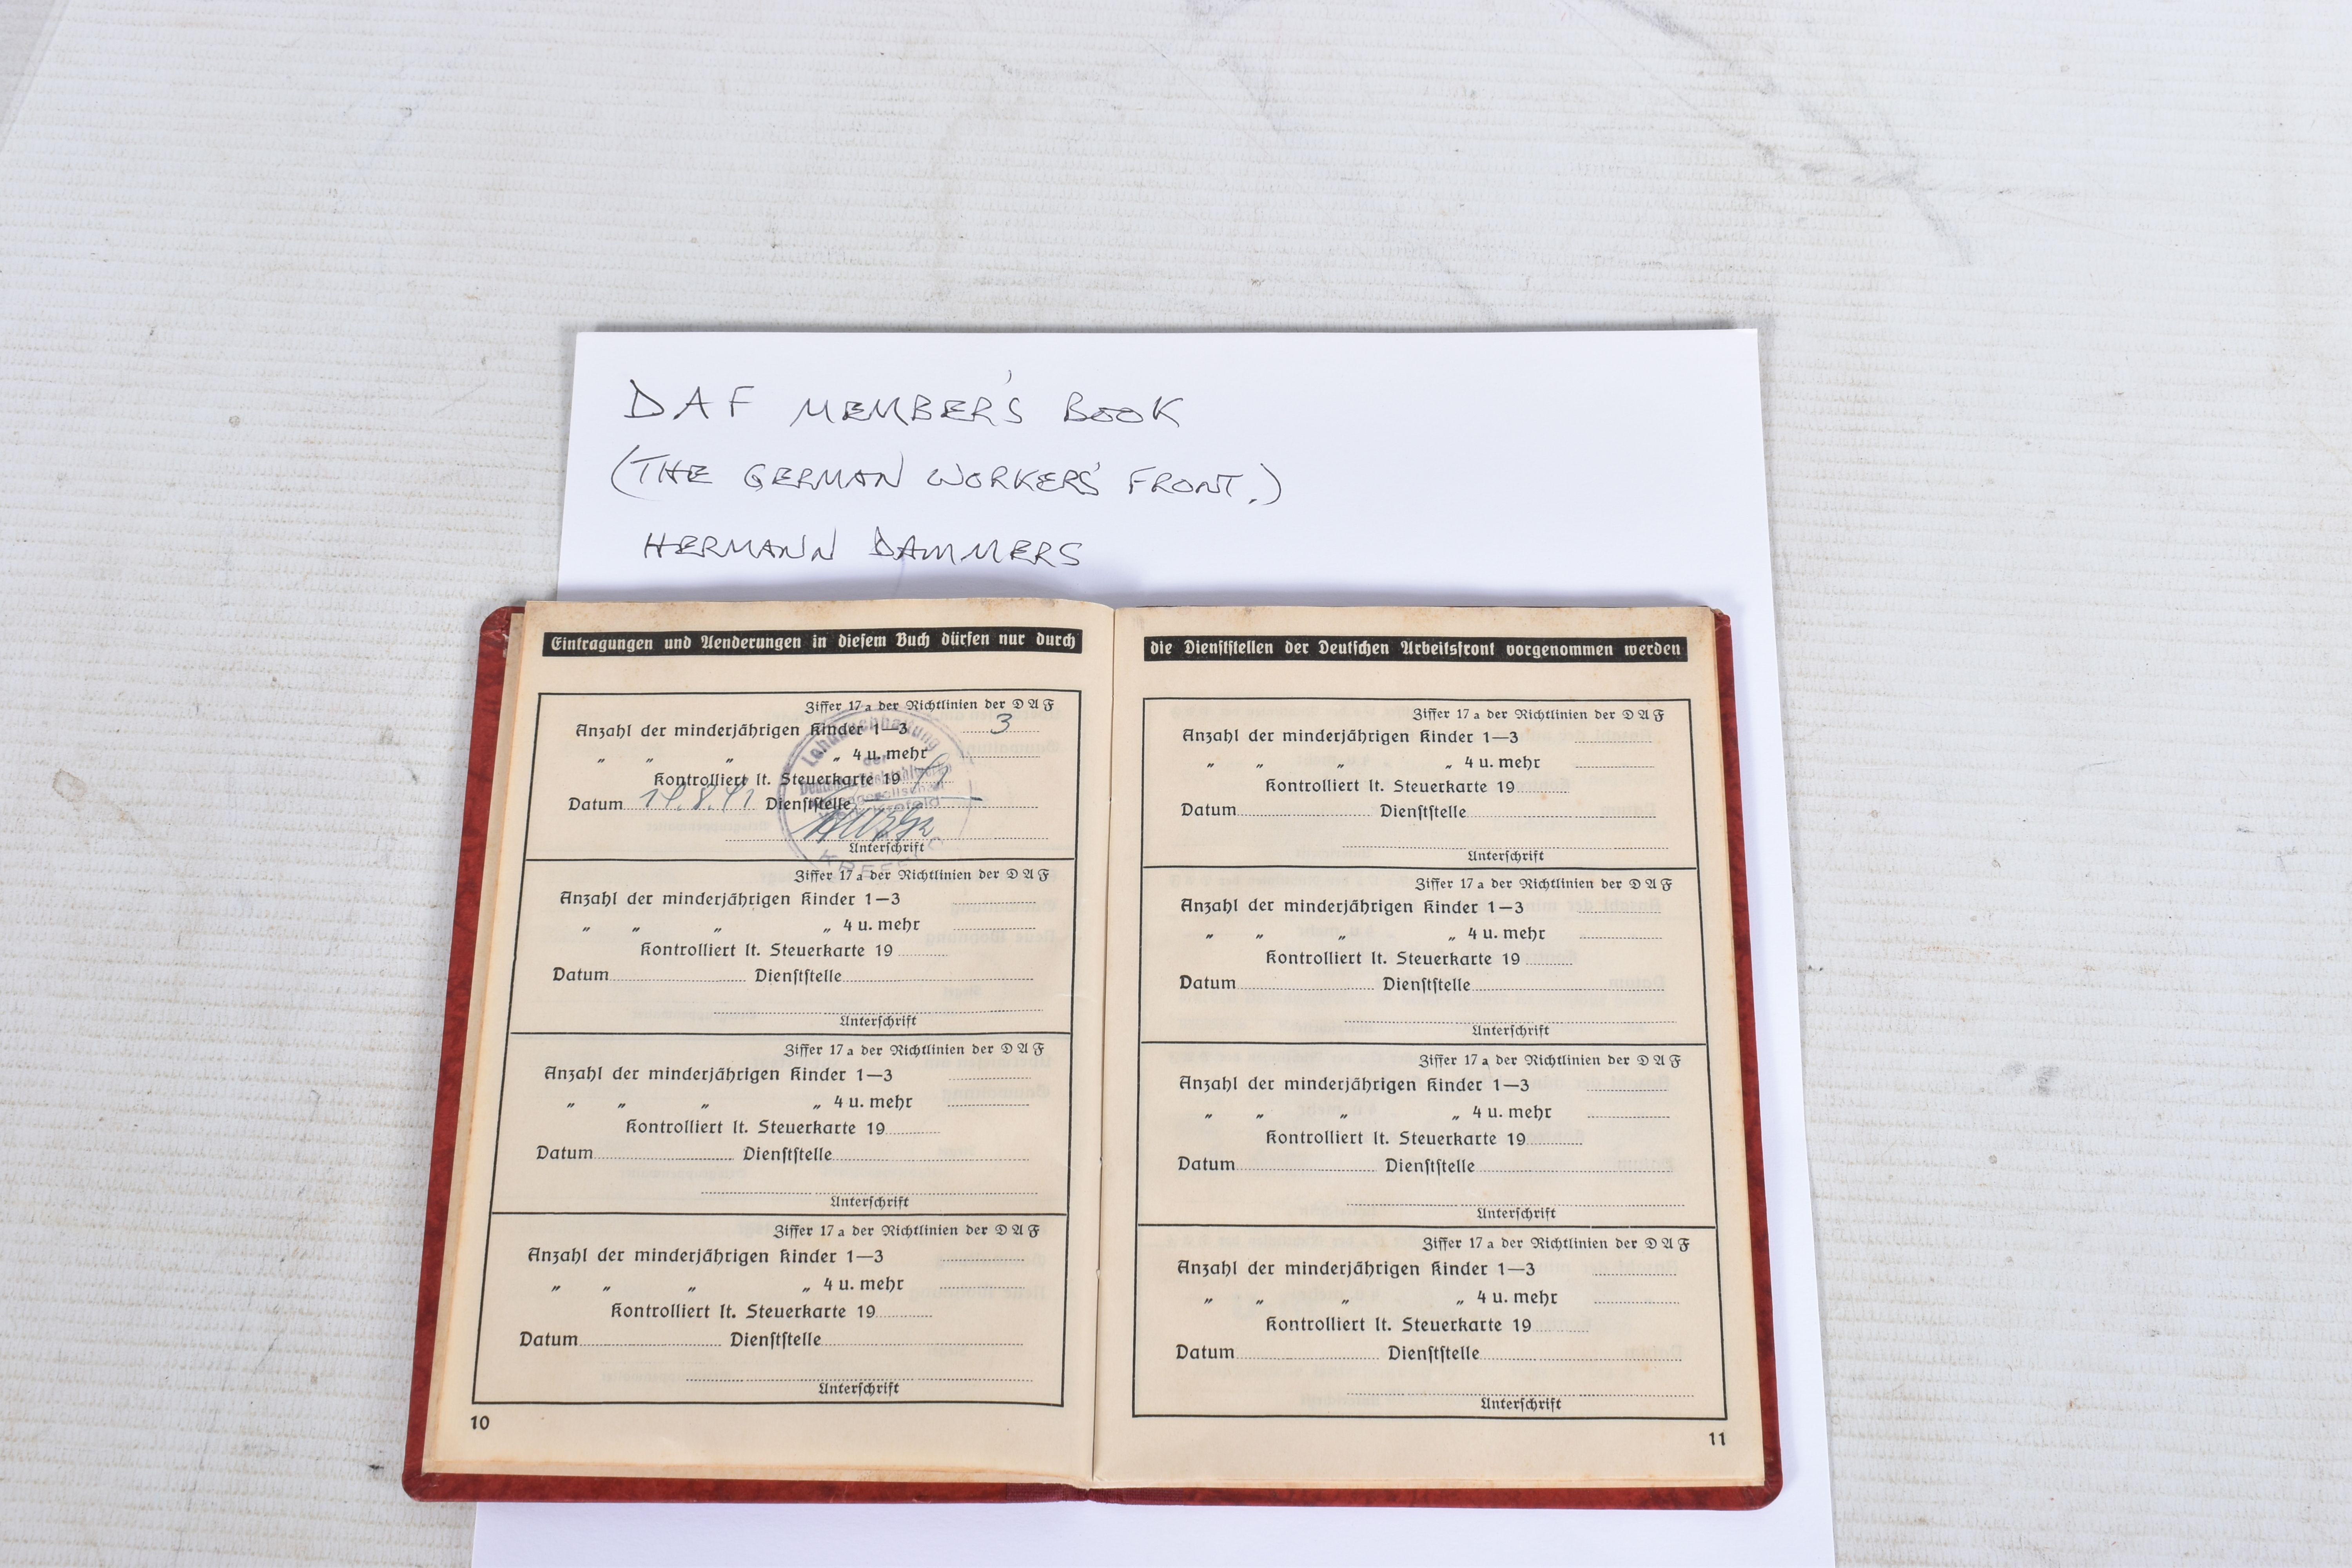 DAF MEMBER'S BOOK
(THE GERMAN WORKERS' FRONT.)
HERMANN DAMMERS
Eintragungen und Aenderungen in diesem Buch dürfen nur durch
Ziffer 17 a der Richtlinien der D A F
Anzahl der minderjährigen Kinder 1—3 3
„ „ „ „ 4 u. mehr
Kontrolliert lt. Steuerkarte 19
Datum Dienststelle
Unterschrift
Lohnbuchhaltung
der
KREFELD
Ziffer 17 a der Richtlinien der D A F
Anzahl der minderjährigen Kinder 1—3
„ „ „ „ 4 u. mehr
Kontrolliert lt. Steuerkarte 19
Datum Dienststelle
Unterschrift
Ziffer 17 a der Richtlinien der D A F
Anzahl der minderjährigen Kinder 1—3
„ „ „ „ 4 u. mehr
Kontrolliert lt. Steuerkarte 19
Datum Dienststelle
Unterschrift
Ziffer 17 a der Richtlinien der D A F
Anzahl der minderjährigen Kinder 1—3
„ „ „ „ 4 u. mehr
Kontrolliert lt. Steuerkarte 19
Datum Dienststelle
Unterschrift
10
die Dienststellen der Deutschen Arbeitsfront vorgenommen werden
Ziffer 17 a der Richtlinien der D A F
Anzahl der minderjährigen Kinder 1—3
„ „ „ „ 4 u. mehr
Kontrolliert lt. Steuerkarte 19
Datum Dienststelle
Unterschrift
Ziffer 17 a der Richtlinien der D A F
Anzahl der minderjährigen Kinder 1—3
„ „ „ „ 4 u. mehr
Kontrolliert lt. Steuerkarte 19
Datum Dienststelle
Unterschrift
Ziffer 17 a der Richtlinien der D A F
Anzahl der minderjährigen Kinder 1—3
„ „ „ „ 4 u. mehr
Kontrolliert lt. Steuerkarte 19
Datum Dienststelle
Unterschrift
Ziffer 17 a der Richtlinien der D A F
Anzahl der minderjährigen Kinder 1—3
„ „ „ „ 4 u. mehr
Kontrolliert lt. Steuerkarte 19
Datum Dienststelle
Unterschrift
11